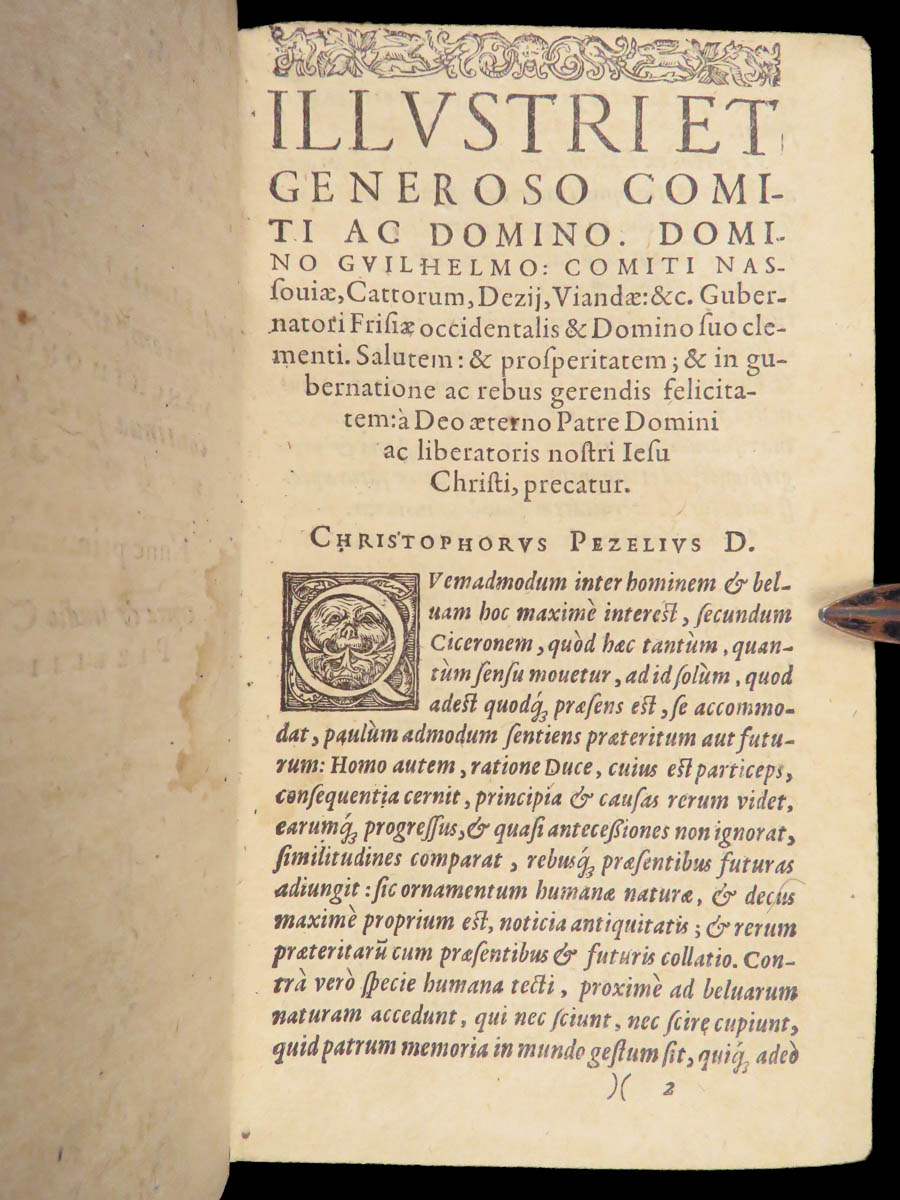 ILLVSTRI ET
GENEROSO COMI-
TI AC DOMINO. DOMI-
NO GVILHELMO: COMITI NAS-
ſouiæ, Cattorum, Dezij, Viandæ: &c. Guber-
natori Friſiæ occidentalis & Domino ſuo cle-
menti. Salutem: & proſperitatem; & in gu-
bernatione ac rebus gerendis felicita-
tem: à Deo æterno Patre Domini
ac liberatoris noſtri Ieſu
Chriſti, precatur.
CHRISTOPHORVS PEZELIVS D.
QVemadmodum inter hominem & bel-
uam hoc maximè intereſt, ſecundum
Ciceronem, quòd hæc tantùm, quan-
tùm ſenſu mouetur, ad id ſolùm, quod
adeſt quodq́ꝫ præſens eſt, ſe accommo-
dat, paulùm admodum ſentiens præteritum aut futu-
rum: Homo autem, ratione Duce, cuius eſt particeps,
conſequentia cernit, principia & cauſas rerum videt,
earumq́ꝫ progreſſus, & quaſi anteceßiones non ignorat,
ſimilitudines comparat, rebusq́ꝫ præſentibus futuras
adiungit: ſic ornamentum humanæ naturæ, & decus
maximè proprium eſt, noticia antiquitatis; & rerum
præteritarū cum præſentibus & futuris collatio. Con-
trà verò ſpecie humana tecti, proximè ad beluarum
naturam accedunt, qui nec ſciunt, nec ſcire cupiunt,
quid patrum memoria in mundo geſtum ſit, quiq́ꝫ adeò
)( 2